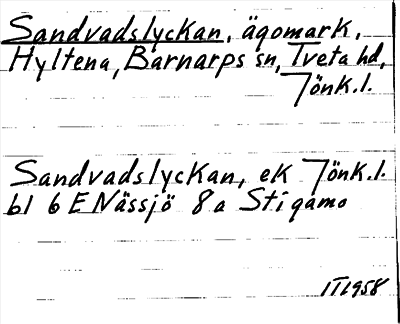 Sandvadslyckan, ägomark,
Hyltena, Barnarps sn, Tveta hd,
Jönk.l.
Sandvadslyckan, ek Jönk.l.
bl 6 E Nässjö 8a Stigamo
III 1958